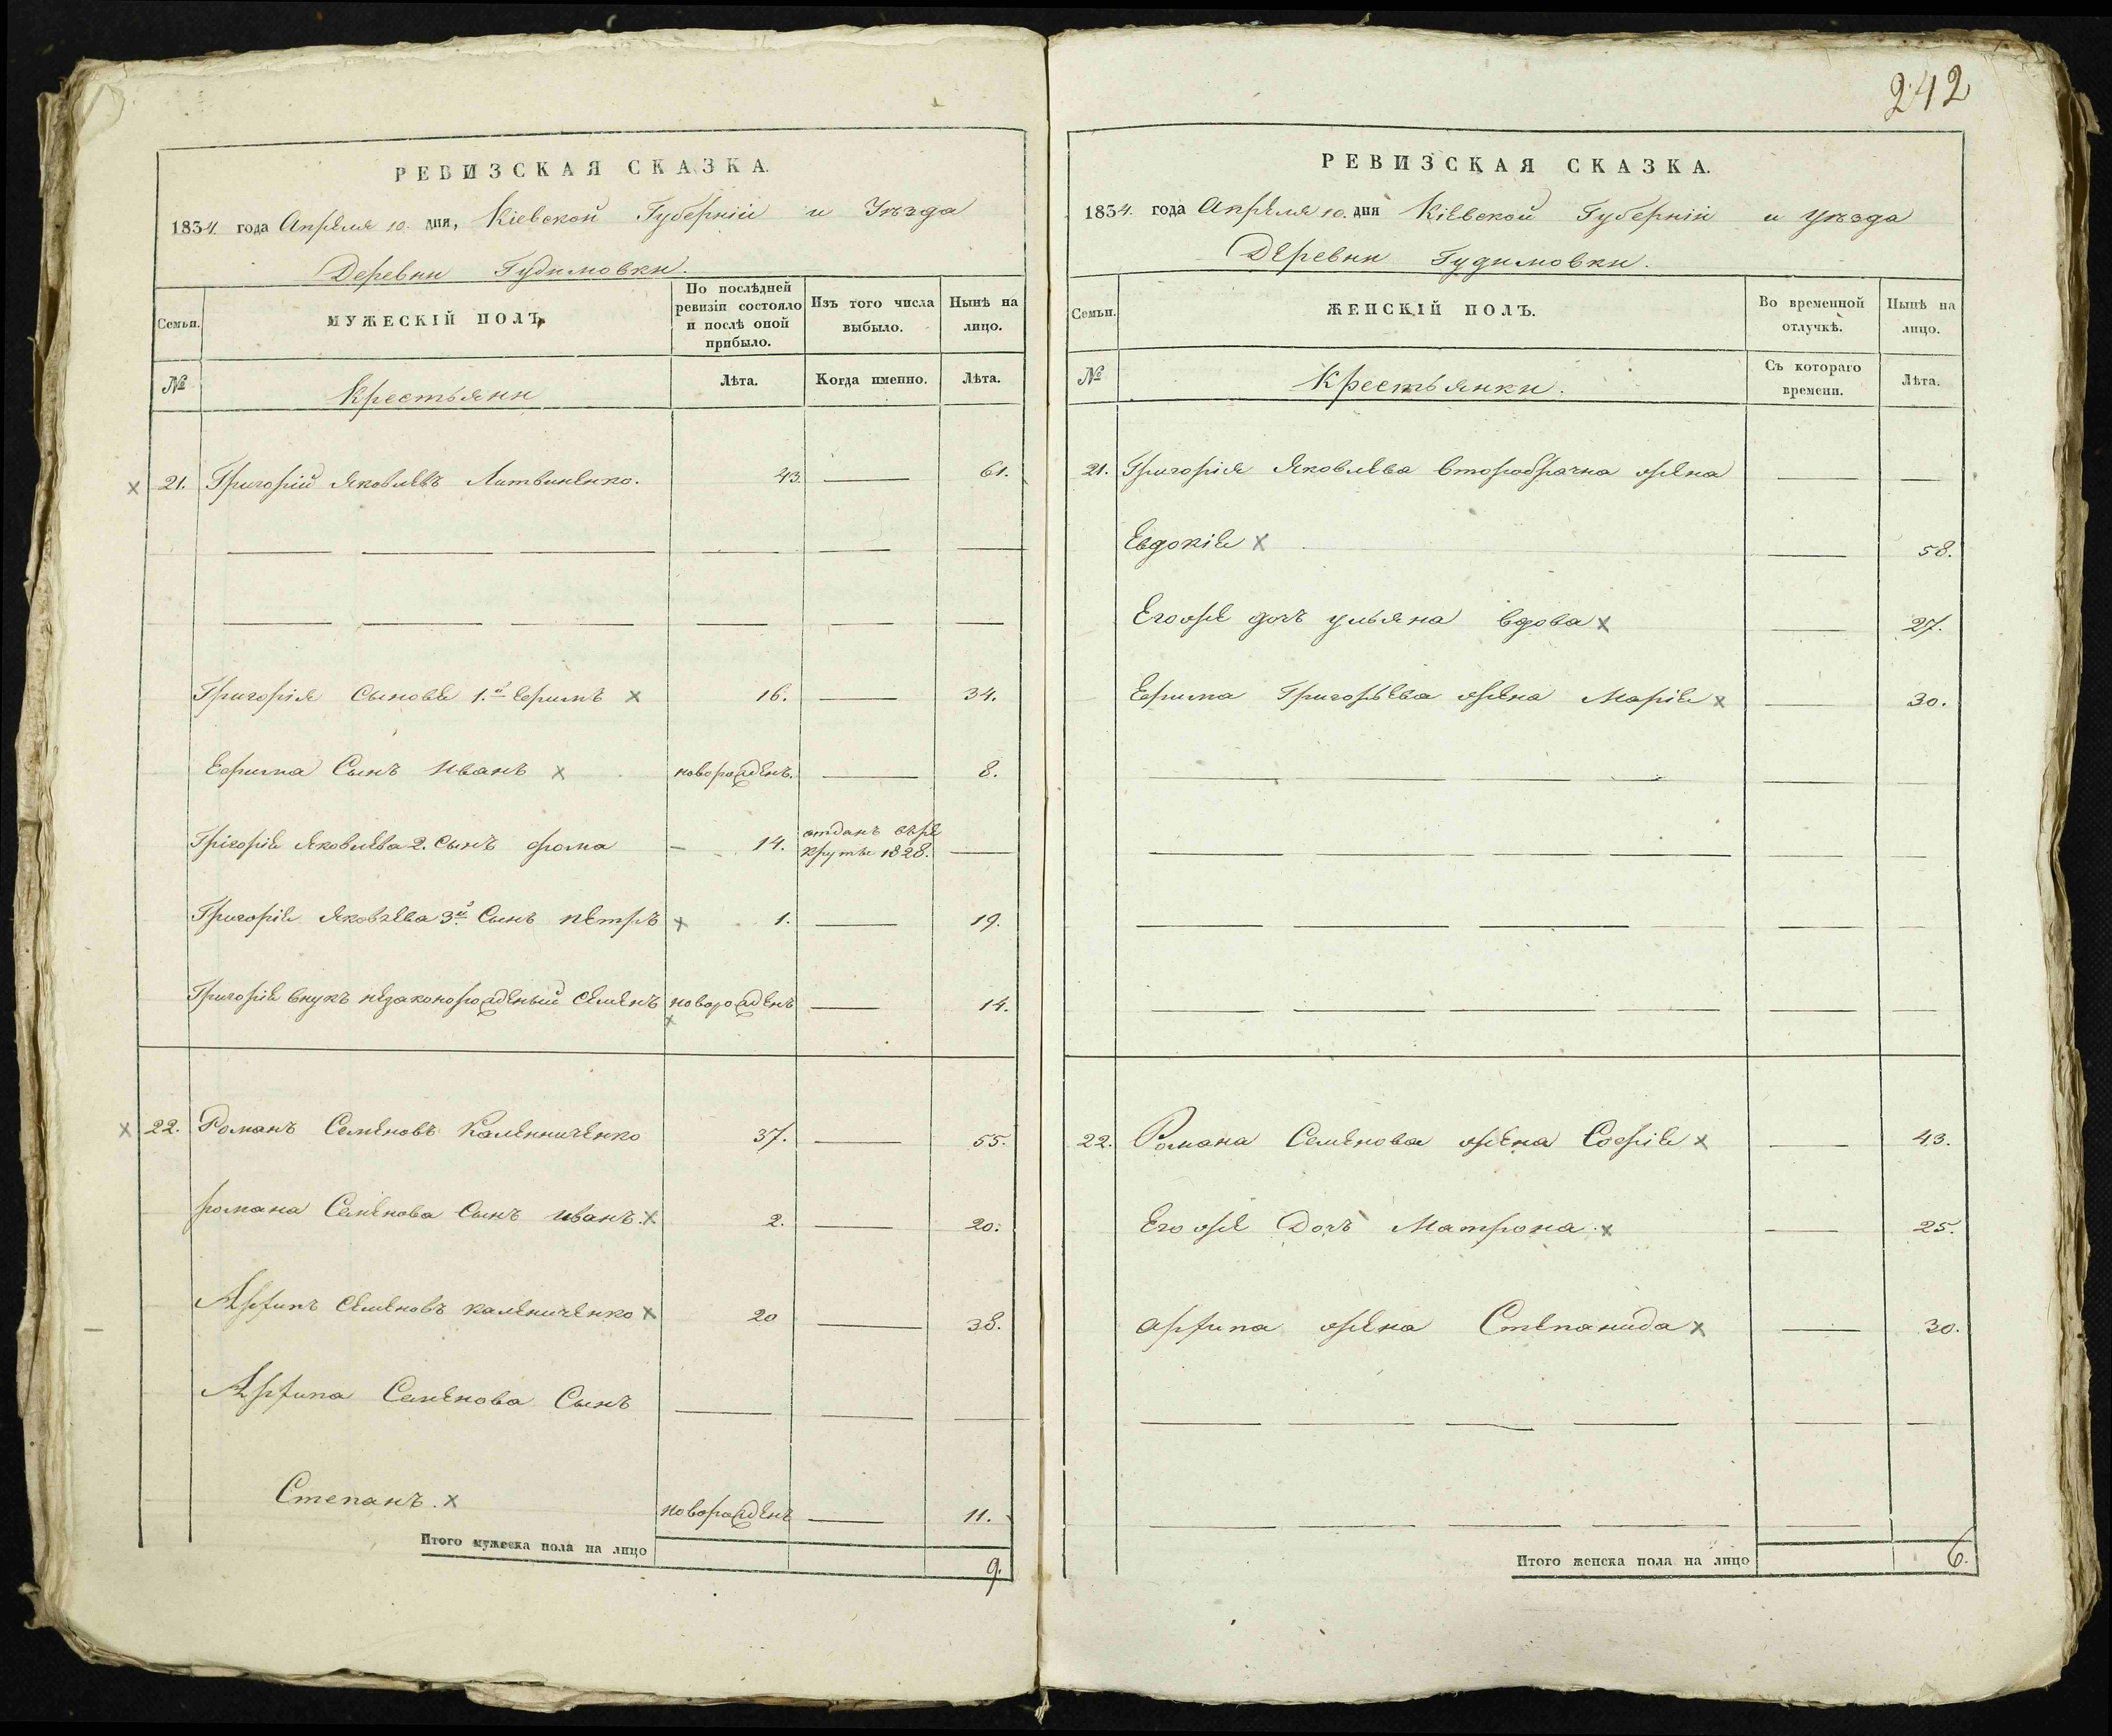 242
РЕВИЗСКАЯ СКАЗКА.
1834. года Апреля 10. дня, Кіевской Губерніи и Уезда
Деревни Гудимовки.
Семьи.
МУЖЕСКІЙ ПОЛЪ.
По послѣдней ревизіи состояло и послѣ оной прибыло.
Изъ того числа выбыло.
Нынѣ на лицо.
№
Крестьяни
Лѣта.
Когда именно.
Лѣта.
21. Григорій Яковлевъ Литвиненко. 43. 61.
Григорія Сынове 1.й Ефимъ 16. 34.
Ефима Сынъ Иванъ новорожденъ. 8.
Грігорія Яковлева 2. Сынъ фома 14. отданъ въ рекруты 1828.
Григорія Яковлева 3й Сынъ петръ 1. 19.
Григорія внукъ незаконорожденый Семенъ новорожденъ 14.
22. Романъ Семеновъ Каленниченко 37. 55.
романа Семенова Сынъ иванъ. 2. 20.
Архипъ Семеновъ каленниченко 20 38.
Архипа Семенова Сынъ
Степанъ. новорожденъ 11.
Итого мужеска пола на лицо 9.
РЕВИЗСКАЯ СКАЗКА.
1834. года Апреля 10. дня Кіевской Губерніи и уезда
Деревни Гудимовки.
Семьи.
ЖЕНСКІЙ ПОЛЪ.
Во временной отлучкѣ.
Нынѣ на лицо.
№
Крестьянки.
Съ котораго времени.
Лѣта.
21. Григорія Яковлева второбрачна жена
Евдокія 58.
Егоже дочъ ульяна вдова 27.
Ефима Григорьева жена Марія 30.
22. Романа Семенова жена Софія 43.
Егоже Дочъ Матрона. 25.
архипа жена Степанида 30.
Итого женска пола на лицо 6.